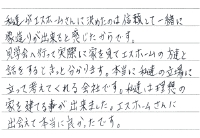 私達がエスホームさんに決めたのは信頼して一緒に
家造りが出来ると感じたからです。
見学会へ行って実際に家を見てエスホームの方達と
話をするときっと分かります。本当に私達の立場に
立って考えてくれる会社です。私達は理想の
家を建てる事が出来ました。エスホームさんに
出会えて本当に良かったです。